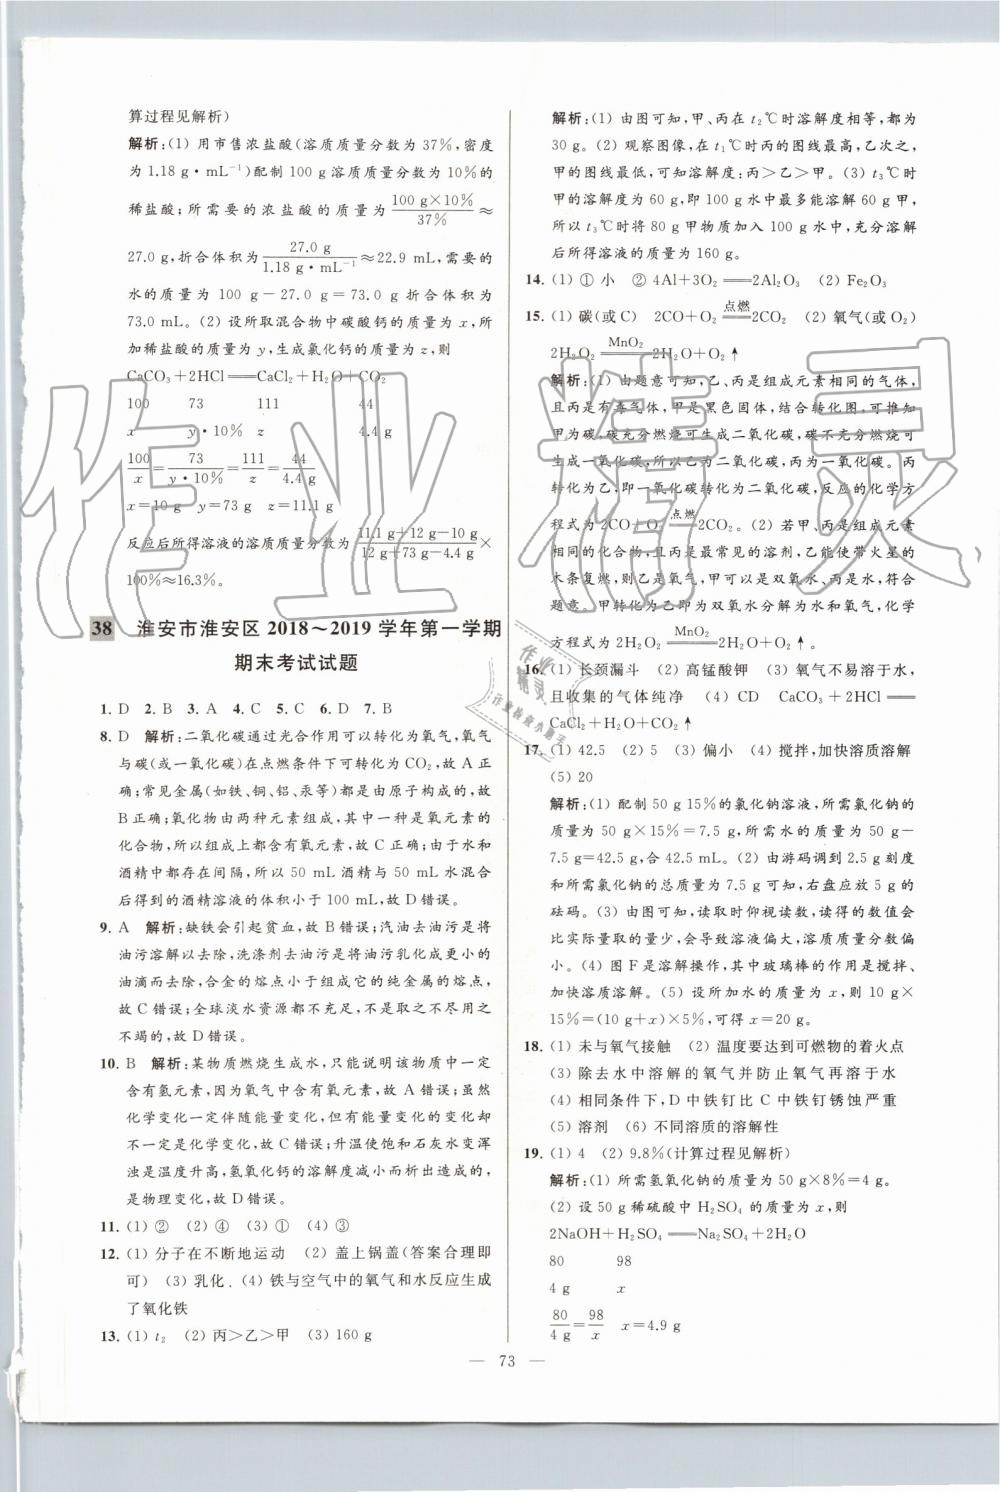 算过程见解析)
解析:(1) 用市售浓盐酸(溶质质量分数为 37%,密度
为 1.18 g·mL⁻¹)配制 100 g 溶质质量分数为 10%的
稀盐酸;所需要的浓盐酸的质量为 100 g×10%/37% ≈
27.0 g,折合体积为 27.0 g/1.18 g·mL⁻¹ ≈22.9 mL,需要的
水的质量为 100 g-27.0 g=73.0 g 折合体积为
73.0 mL。(2) 设所取混合物中碳酸钙的质量为 x,所
加稀盐酸的质量为 y,生成氯化钙的质量为 z,则
CaCO₃+2HCl══CaCl₂+H₂O+CO₂
100 73 111 44
x y·10% z 4.4 g
100/x=73/y·10%=111/z=44/4.4 g
x=10 g y=73 g z=11.1 g
反应后所得溶液的溶质质量分数为 11.1 g+12 g-10 g/12 g+73 g-4.4 g ×
100%≈16.3%。
38 淮安市淮安区 2018~2019 学年第一学期
期末考试试题
1. D 2. B 3. A 4. C 5. C 6. D 7. B
8. D 解析:二氧化碳通过光合作用可以转化为氧气,氧气
与碳(或一氧化碳)在点燃条件下可转化为 CO₂,故 A 正
确;常见金属(如铁、铜、铝、汞等)都是由原子构成的,故
B 正确;氧化物由两种元素组成,其中一种是氧元素的
化合物,所以组成上都含有氧元素,故 C 正确;由于水和
酒精中都存在间隔,所以 50 mL 酒精与 50 mL 水混合
后得到的酒精溶液的体积小于 100 mL,故 D 错误。
9. A 解析:缺铁会引起贫血,故 B 错误;汽油去油污是将
油污溶解以去除,洗涤剂去油污是将油污乳化成更小的
油滴而去除,合金的熔点小于组成它的纯金属的熔点,
故 C 错误;全球淡水资源都不充足,不是取之不尽用之
不竭的,故 D 错误。
10. B 解析:某物质燃烧生成水,只能说明该物质中一定
含有氢元素,因为氧气中含有氧元素,故 A 错误;虽然
化学变化一定伴随能量变化,但有能量变化的变化却
不一定是化学变化,故 C 错误;升温使饱和石灰水变浑
浊是温度升高,氢氧化钙的溶解度减小而析出造成的,
是物理变化,故 D 错误。
11. (1) ② (2) ④ (3) ① (4) ③
12. (1) 分子在不断地运动 (2) 盖上锅盖(答案合理即
可) (3) 乳化 (4) 铁与空气中的氧气和水反应生成
了氧化铁
13. (1) t₂ (2) 丙>乙>甲 (3) 160 g
解析:(1) 由图可知,甲、丙在 t₂℃时溶解度相等,都为
30 g。(2) 观察图像,在 t₁℃时丙的图线最高,乙次之,
甲的图线最低,可知溶解度:丙>乙>甲。(3) t₃℃时
甲的溶解度为 60 g,即 100 g 水中最多能溶解 60 g 甲,
所以 t₃℃时将 80 g 甲物质加入 100 g 水中,充分溶解
后所得溶液的质量为 160 g。
14. (1) ① 小 ② 4Al+3O₂══2Al₂O₃ (2) Fe₂O₃
15. (1) 碳(或 C) 2CO+O₂ 点燃══ 2CO₂ (2) 氧气(或 O₂)
2H₂O₂ MnO₂══ 2H₂O+O₂↑
解析:(1) 由题意可知,乙、丙是组成元素相同的气体,
且丙是有毒气体,甲是黑色固体,结合转化图,可推知
甲为碳,碳充分燃烧可生成二氧化碳,碳不充分燃烧可
生成一氧化碳,所以乙为二氧化碳,丙为一氧化碳。丙
转化为乙,即一氧化碳转化为二氧化碳,反应的化学方
程式为 2CO+O₂ 点燃══ 2CO₂。(2) 若甲、丙是组成元素
相同的化合物,且丙是最常见的溶剂,乙能使带火星的
木条复燃,则乙是氧气,甲可以是双氧水、丙是水,符合
题意。甲转化为乙即为双氧水分解为水和氧气,化学
方程式为 2H₂O₂ MnO₂══ 2H₂O+O₂↑。
16. (1) 长颈漏斗 (2) 高锰酸钾 (3) 氧气不易溶于水,
且收集的气体纯净 (4) CD CaCO₃+2HCl══
CaCl₂+H₂O+CO₂↑
17. (1) 42.5 (2) 5 (3) 偏小 (4) 搅拌,加快溶质溶解
(5) 20
解析:(1) 配制 50 g 15%的氯化钠溶液,所需氯化钠的
质量为 50 g×15%=7.5 g,所需水的质量为 50 g-
7.5 g=42.5 g,合 42.5 mL。(2) 由游码调到 2.5 g 刻度
和所需氯化钠的总质量为 7.5 g 可知,右盘应放 5 g 的
砝码。(3) 由图可知,读取时仰视读数,读得的数值会
比实际量取的量少,会导致溶液偏大,溶质质量分数偏
小。(4) 图 F 是溶解操作,其中玻璃棒的作用是搅拌,
加快溶质溶解。(5) 设所加水的质量为 x,则 10 g×
15%=(10 g+x)×5%,可得 x=20 g。
18. (1) 未与氧气接触 (2) 温度要达到可燃物的着火点
(3) 除去水中溶解的氧气并防止氧气再溶于水
(4) 相同条件下,D 中铁钉比 C 中铁钉锈蚀严重
(5) 溶剂 (6) 不同溶质的溶解性
19. (1) 4 (2) 9.8%(计算过程见解析)
解析:(1) 所需氢氧化钠的质量为 50 g×8%=4 g。
(2) 设 50 g 稀硫酸中 H₂SO₄ 的质量为 x,则
2NaOH+H₂SO₄══Na₂SO₄+2H₂O
80 98
4 g x
80/4 g=98/x x=4.9 g
— 73 —
作业精灵